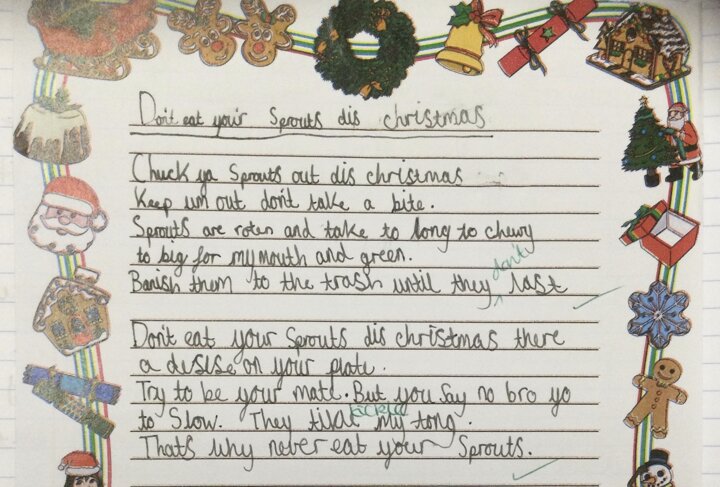 Don't eat your Sprouts dis christmas
Chuck ya Sprouts out dis christmas
Keep um out don't take a bite.
Sprouts are roten and take to long to chewy
to big for my mouth and green.
Banish them to the trash until they don't last
Don't eat your Sprouts dis christmas there
a desise on your plate.
Try to be your mate. But you say no bro yo
to Slow. They tikal tickle my tong.
Thats why never eat your Sprouts.